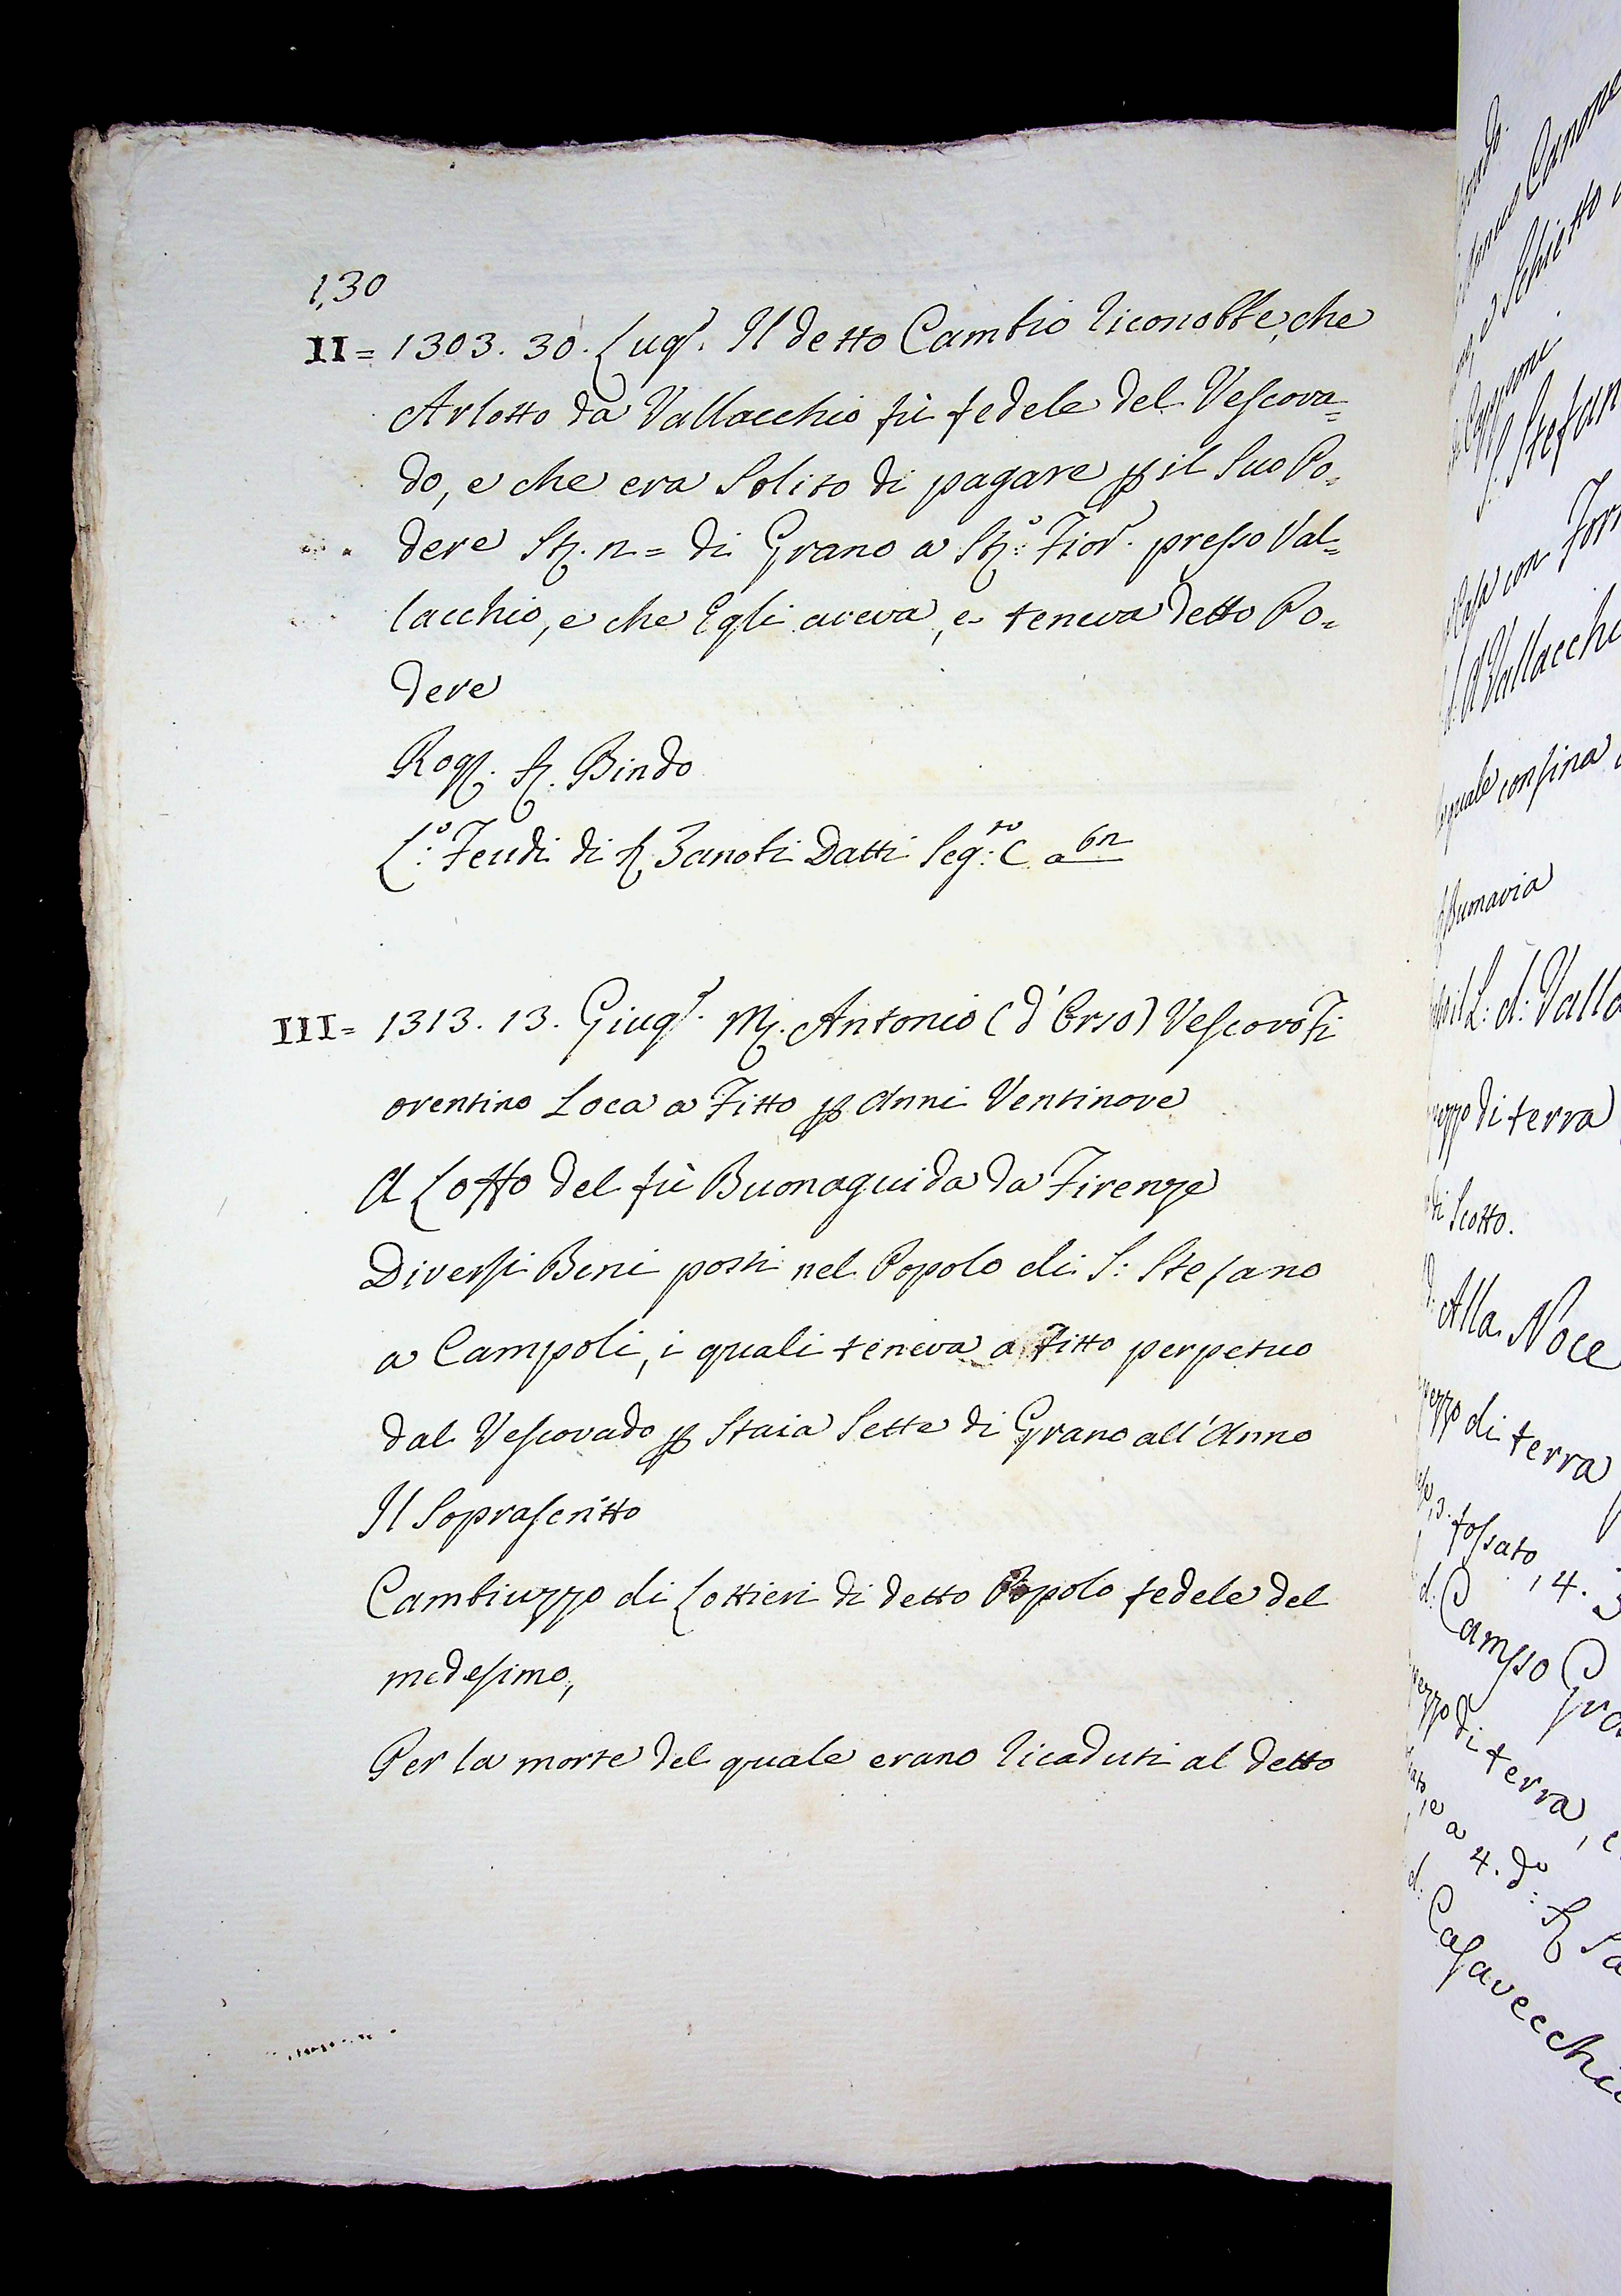 130
II = 1303. 30. Lugº. Il detto Cambio riconobbe, che
Arlotto da Vallacchio fù fedele del Vescova=
do, e che era solito di pagare p il suo Po=
dere St. n = di Grano a Stº: Fiorº. presso Val=
lacchio, e che Egli aveva, e teneva detto Po=
dere
Rogº. S. Bindo
Lº: Feudi di S. Zanobi Datti Segº: C a 6n
III = 1313. 13. Giugº. M. Antonio (d'Orso) Vescovo Fi
orentino Loca a Fitto p Anni Ventinove
A Loffo del fù Buonaguida da Firenze
Diversi Beni posti nel Popolo di S: Stefano
a Campoli, i quali teneva a Fitto perpetuo
dal Vescovado p Staia Sette di Grano all'Anno
Il Soprascritto
Cambiuzzo di Lottieri di detto Popolo fedele del
medesimo,
Per la morte del quale erano ricaduti al detto
Canone
e schietto
S. Stefan
Casa con Forn
d. A Vallacchi
quale confina
Buonavia
il L: d: Valla
pezzo di terra
di Scotto.
d. Alla Noce
pezzo di terra
3. fossato, 4.
d. Campo Gra
pezzo di terra, e
e a 4. dº:
d. Casavecchi